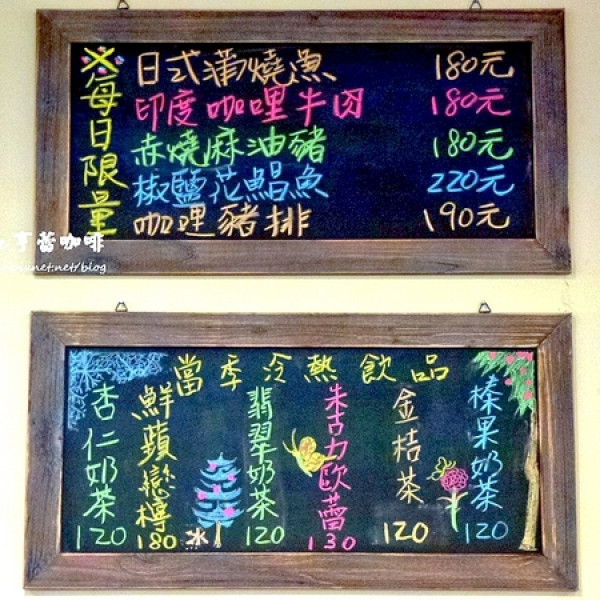 ※每日限量
日式蒲燒魚 180元
印度咖哩牛肉 180元
赤燒麻油豬 180元
椒鹽花鯧魚 220元
咖哩豬排 190元
亨蕾咖啡
net.net/blog
當季冷熱飲品
杏仁奶茶 120
鮮蘋戀檸 180 冰
翡翠奶茶 120
朱古力歐蕾 130
金桔茶 120
榛果奶茶 120